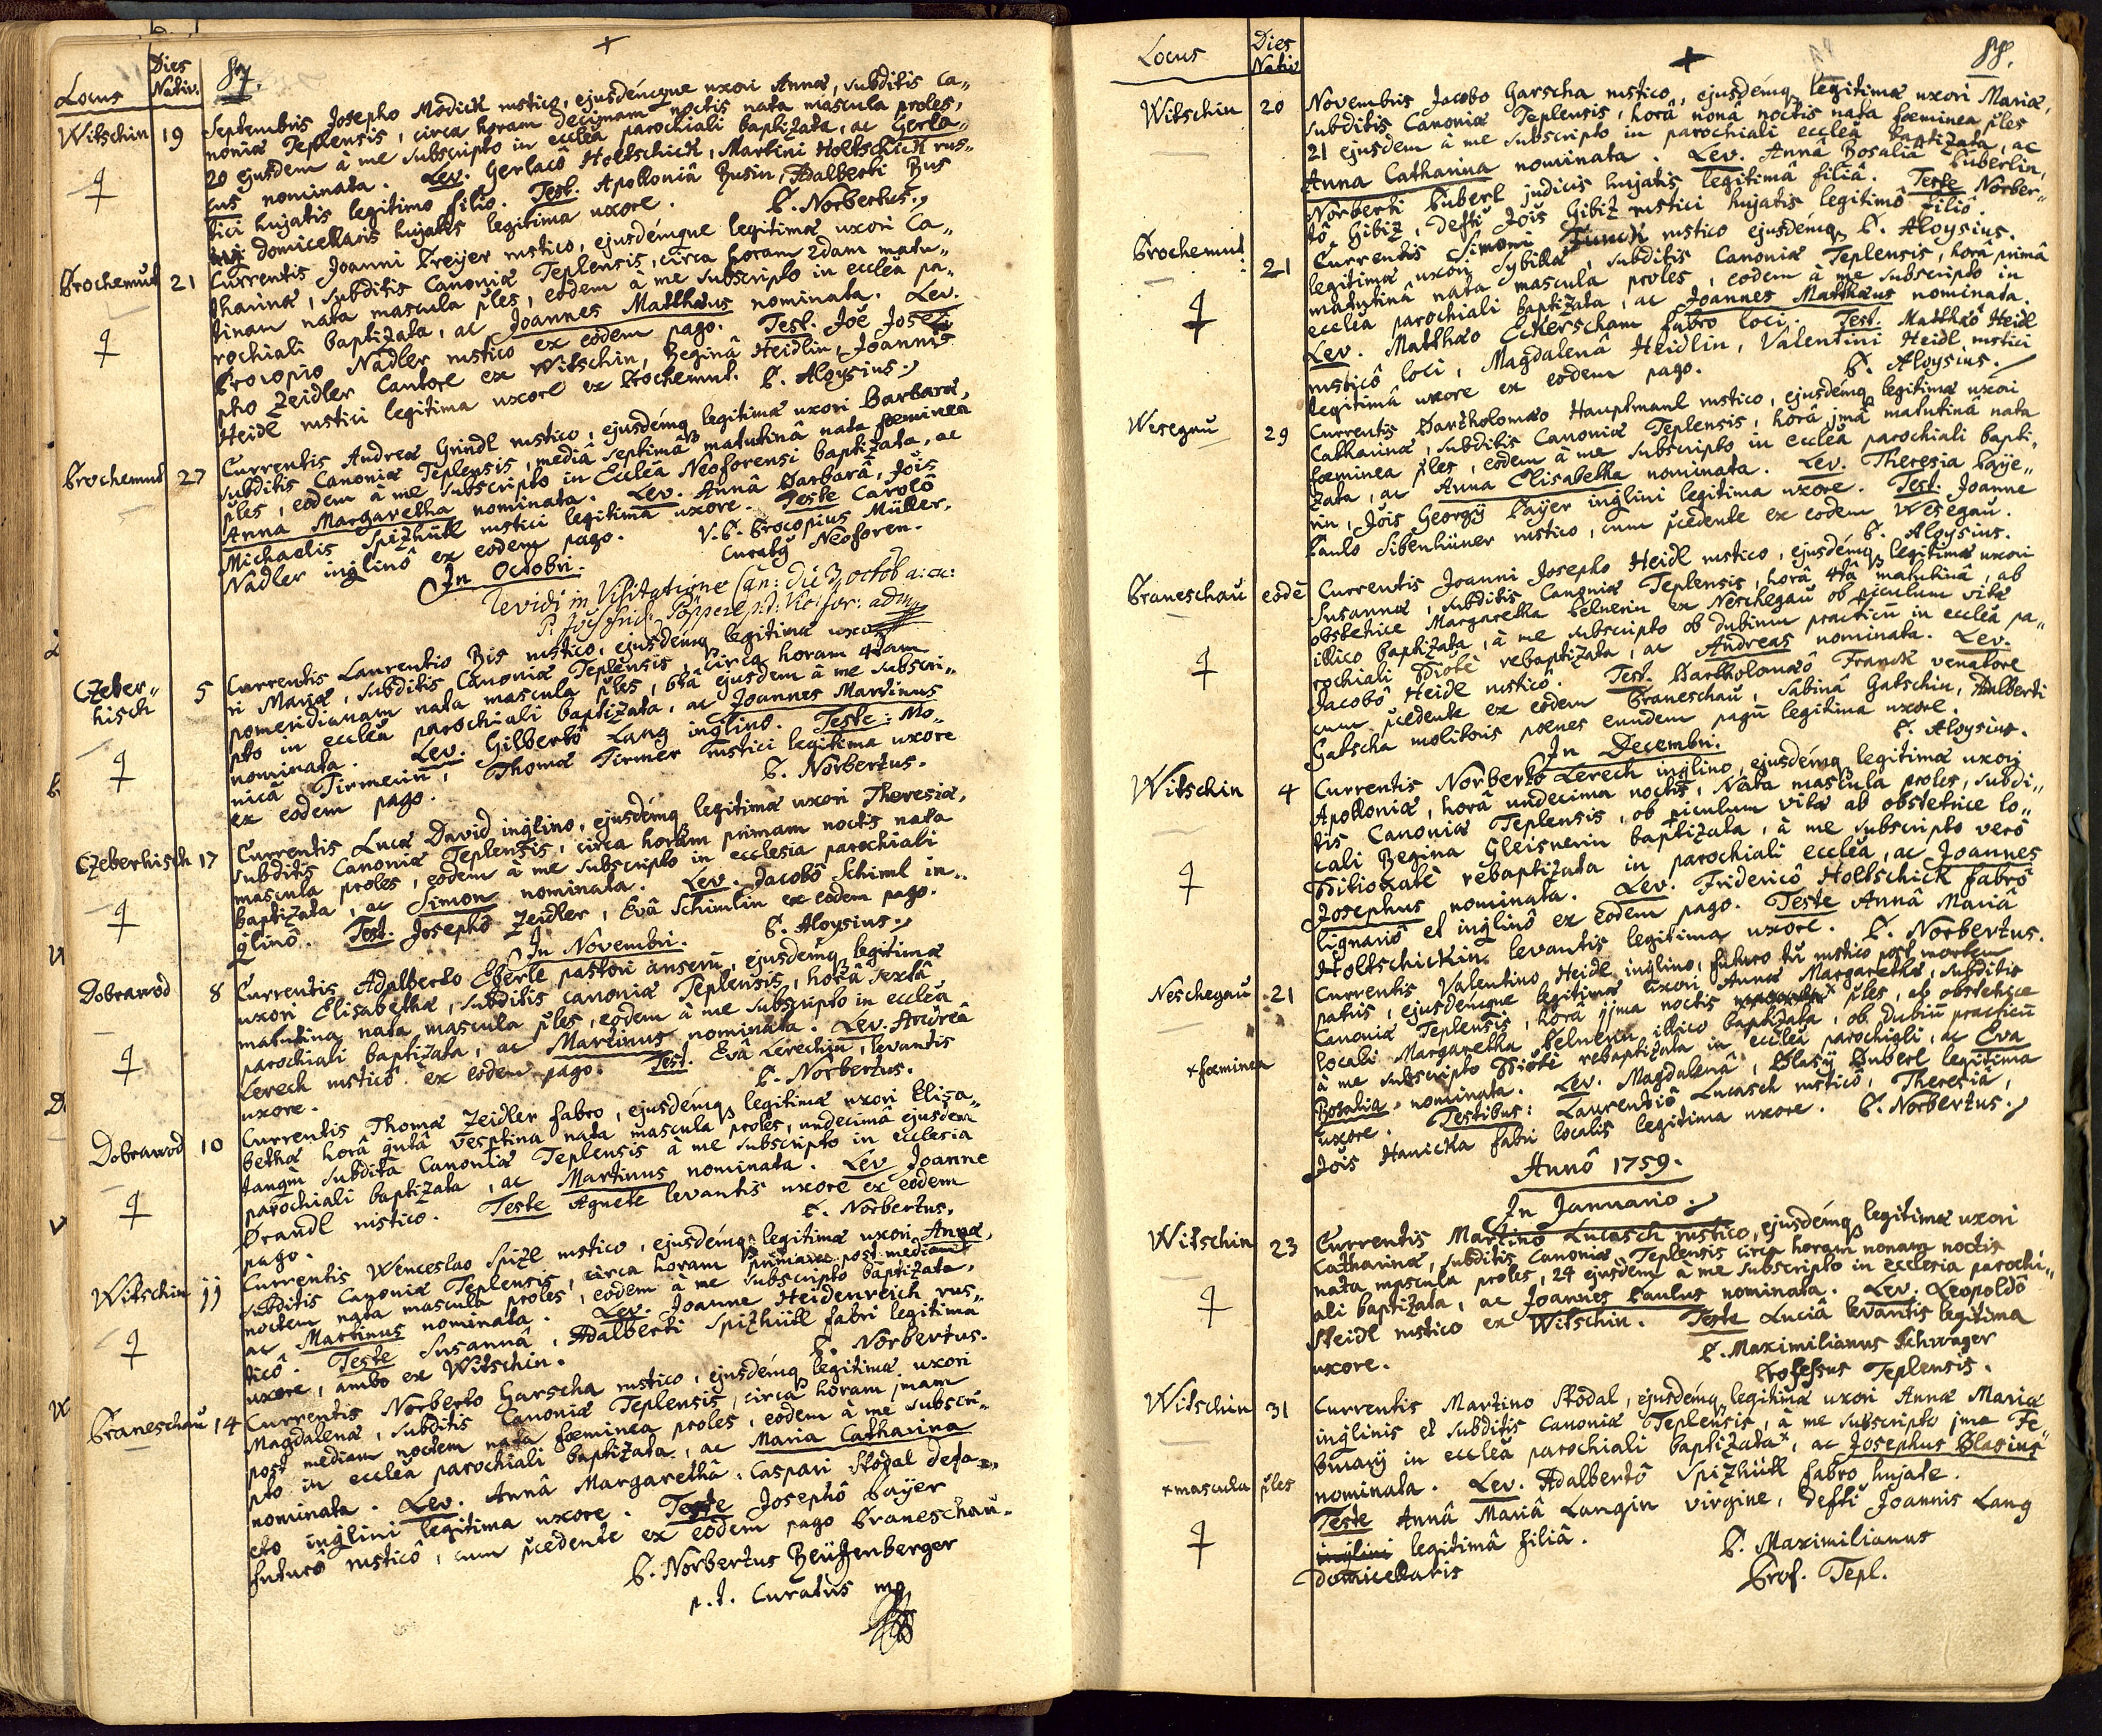 Locus
Dies
Nativ.
87.
Witschin 19 Septembris Josepho Modick rustico, ejusdémque uxori Annæ, subditis Ca„
noniæ Teplensis, circa horam decimam noctis nata mascula proles,
20 ejusdem à me subscripto in eccleã parochiali baptizata, ac Gerla„
cus nominata. Lev. Gerlacô Holtschick, Martini Holtschick rus„
tici hujatis legitimo filiô. Test. Apolloniâ Busin, Adalberti Bus
domicellaris hujatis legitima uxore. P. Norbertus.
Prochemut 21 Currentis Joanni Preijer rustico, ejusdémque legitimæ uxori Ca„
tharinæ, subditis Canoniæ Teplensis, circa horam 2dam matu„
tinam nata mascula p̃les, eodem à me subscripto in eccleã pa„
rochiali baptizata, ac Joannes Matthæus nominata. Lev.
Procopio Nadler rustico ex eodem pago. Test. Joe Jose„
pho Zeidler Cantore ex Witschin, Reginâ Heidlin, Joannis
Heidl rustici legitima uxore ex Prochemut. P. Aloysius.
Prochemut 27 Currentis Andreæ Grindl rustico, ejusdémq legitimæ uxori Barbaræ,
subditis Canoniæ Teplensis, mediâ septimâ matutinâ nata fœminea
p̃les, eodem à me subscripto in Eccleã Neoforensi baptizata, ac
Anna Margaretha nominata. Lev. Annâ Barbarâ, Jois
Michaelis Spizhütl rustici legitimâ uxore. Teste Carolô
Nadler inq̃linô ex eodem pago. V. P. Procopius Müller,
Curatq Neoforen.
In Octobri.
revidi in Visitatione Can: die 3 octob a: cu:
Czeber„
hisch 5 Currentis Laurentio Bis rustico, ejusdémq legitimæ uxo„
ri Mariæ, subditis Canoniæ Teplensis, circa horam 4tam
pomeridianam nata mascula p̃les, 6tâ ejusdem à me subscri„
pto in eccleã parochiali baptizata, ac Joannes Martinus
nominata. Lev. Gilbertô Lang inq̃linô. Teste: Mo„
nicâ Tirmerin, Thomæ Tirmer rustici legitima uxore
ex eodem pago. P. Norbertus.
Czeberhisch 17 Currentis Lucæ David inq̃lino, ejusdémq legitimæ uxori Theresiæ,
subditis Canoniæ Teplensis, circa horam primam noctis nata
mascula proles, eodem à me subscripto in ecclesia parochiali
baptizata, ac Simon nominata. Lev. Jacobô Schiml in„
q̃linô. Test. Josephô Zeidler, Evâ Schimlin ex eodem pago.
P. Aloysius.
In Novembri.
Dobrawod 8 Currentis Adalberto Eberle pastori anserũ, ejusdémq legitimæ
uxori Elisabethæ, subditis canoniæ Teplensis, horâ sextâ
matutina nata mascula p̃les, eodem à me subscripto in eccleã
parochiali baptizata, ac Martinus nominata. Lev. Andreâ
Lerech rusticô ex eodem pago. Test. Evâ Lerechin, levantis
uxore. P. Norbertus.
Dobrawod 10 Currentis Thomæ Zeidler fabro, ejusdémq legitimæ uxori Elisa„
bethæ horâ q̃utâ vesp̃tina nata mascula proles, undecimâ ejusdem
tanq̃m subdita Canoniæ Teplensis à me subscripto in ecclesia
parochiali baptizata, ac Martinus nominata. Lev Joanne
Brandl rustico. Teste Agnete levantis uxore ex eodem
pago. P. Norbertus.
Witschin 11 Currentis Wenceslao Spizl rustico, ejusdémq legitimæ uxori Annæ,
subditis Canoniæ Teplensis, circa horam primam post mediam
noctem nata mascula proles, eodem à me subscripto baptizata,
ac Martinus nominata. Lev. Joanne Heidenreich rus„
ticô. Teste Susannâ, Adalberti Spizhütl fabri legitima
uxore, ambo ex Witschin. P. Norbertus.
Praneschau 14 Currentis Norberto Garscha rustico, ejusdémq legitimæ uxori
Magdalenæ, subditis Canoniæ Teplensis, circa horam 1mam
post mediam noctem nata fœminea proles, eodem à me subscri„
pto in eccleã parochiali baptizata, ac Maria Catharina
nominata. Lev. Annâ Margarethâ, Caspari Stödal
inq̃lini legitima uxore. Teste Josephô Payer
futurô rusticô, cum p̃cedente ex eodem pago Praneschau.
P. Norbertus Reütenberger
p.t. Curatus mp
Locus
Dies
Nativ
88.
Witschin 20 Novembris Jacobo Garscha rustico, ejusdémq legitimæ uxori Mariæ,
subditis Canoniæ Teplensis, horâ nonâ noctis nata fœminea p̃les
21 ejusdem à me subscripto in parochiali eccleã baptizata, ac
Anna Catharina nominata. Lev. Annâ Rosaliâ Puberlin,
Norberti Puberl judicis hujatis legitimâ filiâ. Teste Norber„
tô Gibiz, defti Jois Gibiz rustici hujatis legitimô filiô.
P. Aloysius.
Prochemut 21 Currentis Simoni Funck rustico ejusdémq
legitimæ uxori Sybillæ, subditis Canoniæ Teplensis, horâ primâ
matutinâ nata mascula proles, eodem à me subscripto in
eccleã parochiali baptizata, ac Joannes Matthæus nominata.
Lev. Matthæo Eckerscham fabro loci. Test. Matthæô Heidl
rusticô loci, Magdalenâ Heidlin, Valentini Heidl rustici
legitimâ uxore ex eodem pago. P. Aloysius.
Wesegau 29 Currentis Bartholomæo Hauptmanl rustico, ejusdémq legitimæ uxori
Catharinæ, subditis Canoniæ Teplensis, horâ 1mâ matutinâ nata
fœminea p̃les, eodem à me subscripto in eccleã parochiali bapti„
zata, ac Anna Elisabetha nominata. Lev. Theresia Paÿe„
rin, Jois Georgÿ Paÿer inq̃lini legitima uxore. Test. Joanne
Paulo Sibenhüner rustico, cum p̃cedente ex eodem Wesegau.
P. Aloysius.
Praneschau eodē Currentis Joanni Josepho Heidl rustico, ejusdémq legitimæ uxori
Susannæ, subditis Canoniæ Teplensis, horâ 4tâ matutinâ, ab
obstetrice Margaretha Pelnerin ex Neschegau ob p̃iculum vitæ
illico baptizata, à me subscripto ob dubium practicũ in eccleã pa„
rochiali rebaptizata, ac Andreas nominata. Lev.
Jacobô Heidl rusticô. Test. Bartholomæô Franck venatore
cum p̃cedente ex eodem Praneschau, Sabinâ Gatschin, Adalberti
Gatscha molitoris pœnes eundem pagũ legitima uxore.
P. Aloysius.
In Decembri.
Witschin 4 Currentis Norberto Lerech inq̃lino, ejusdémq legitimæ uxori
Apolloniæ, horâ undecima noctis, Nata mascula proles, subdi„
tis Canoniæ Teplensis, ob p̃iculum vitæ ab obstetrice lo„
cali Regina Gleisnerin baptizata, à me subscripto verò
rebaptizata in parochiali eccleã, ac Joannes
Josephus nominata. Lev. Fridericô Holtschick fabrô
lignariô et inq̃linô ex eodem pago. Teste Annâ Mariâ
Holtschickin levantis legitima uxore. P. Norbertus.
Neschegau 21 Currentis Valentino Heidl inq̃lino, futuro tũ rustico post mortem
patris, ejusdémque legitimæ uxori Annæ Margarethæ, subditis
Canoniæ Teplensis, horâ 11ma noctis × p̃les, ab obstetrice
locali Margaretha Pelnerin illico baptizata, ob dubiũ practicũ
× fœminea
à me subscripto rebaptizata in eccleã parochiali, ac Eva
Rosalia nominata. Lev. Magdalenâ, Blasÿ Buberl legitima
uxore. Testibus: Laurentiô Lucasch rusticô, Theresiâ,
Jois Hanicka fabri localis legitima uxore. P. Norbertus.
Annô 1759.
In Januario.
Witschin 23 Currentis Martino Lucasch rustico, ejusdémq legitimæ uxori
Catharinæ, subditis Canoniæ Teplensis circa horam nonam noctis
nata mascula proles, 24 ejusdem à me subscripto in ecclesia parochi„
ali baptizata, ac Joannes Paulus nominata. Lev. Leopoldô
Steidl rustico ex Witschin. Teste Luciâ levantis legitima
uxore. P. Maximilianus Schwager
Professus Teplensis.
Witschin 31 Currentis Martino Stödal, ejusdémq legitimæ uxori Annæ Mariæ
inq̃linis et subditis Canoniæ Teplensis, à me subscripto 1ma Fe„
bruarÿ in eccleã parochiali baptizata×, ac Josephus Blasius
× mascula p̃les
nominata. Lev. Adalbertô Spizhütl fabro hujate.
Teste Annâ Mariâ Langin virgine, defti Joannis Lang
inq̃lini legitimâ filiâ. P. Maximilianus
domicellaris Prof. Tepl.